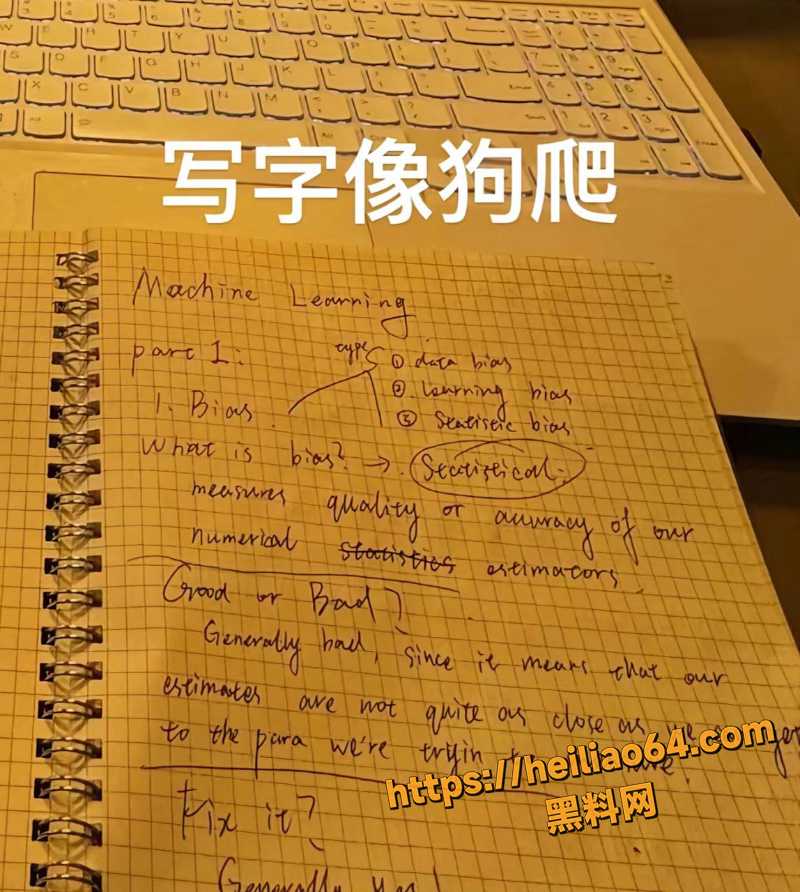 写字像狗爬
Machine Learning
part 1:
type
① data bias
② Learning bias
③ Statistic bias
1. Bias.
What is bias? → Statistical:
measures quality or accuracy of our
numerical statistics estimators
Good or Bad?
Generally bad, since it means that our
estimates are not quite as close as we
to the para we're tryin
https://heiliao64.com
黑料网
Fix it?
Generally Yes!